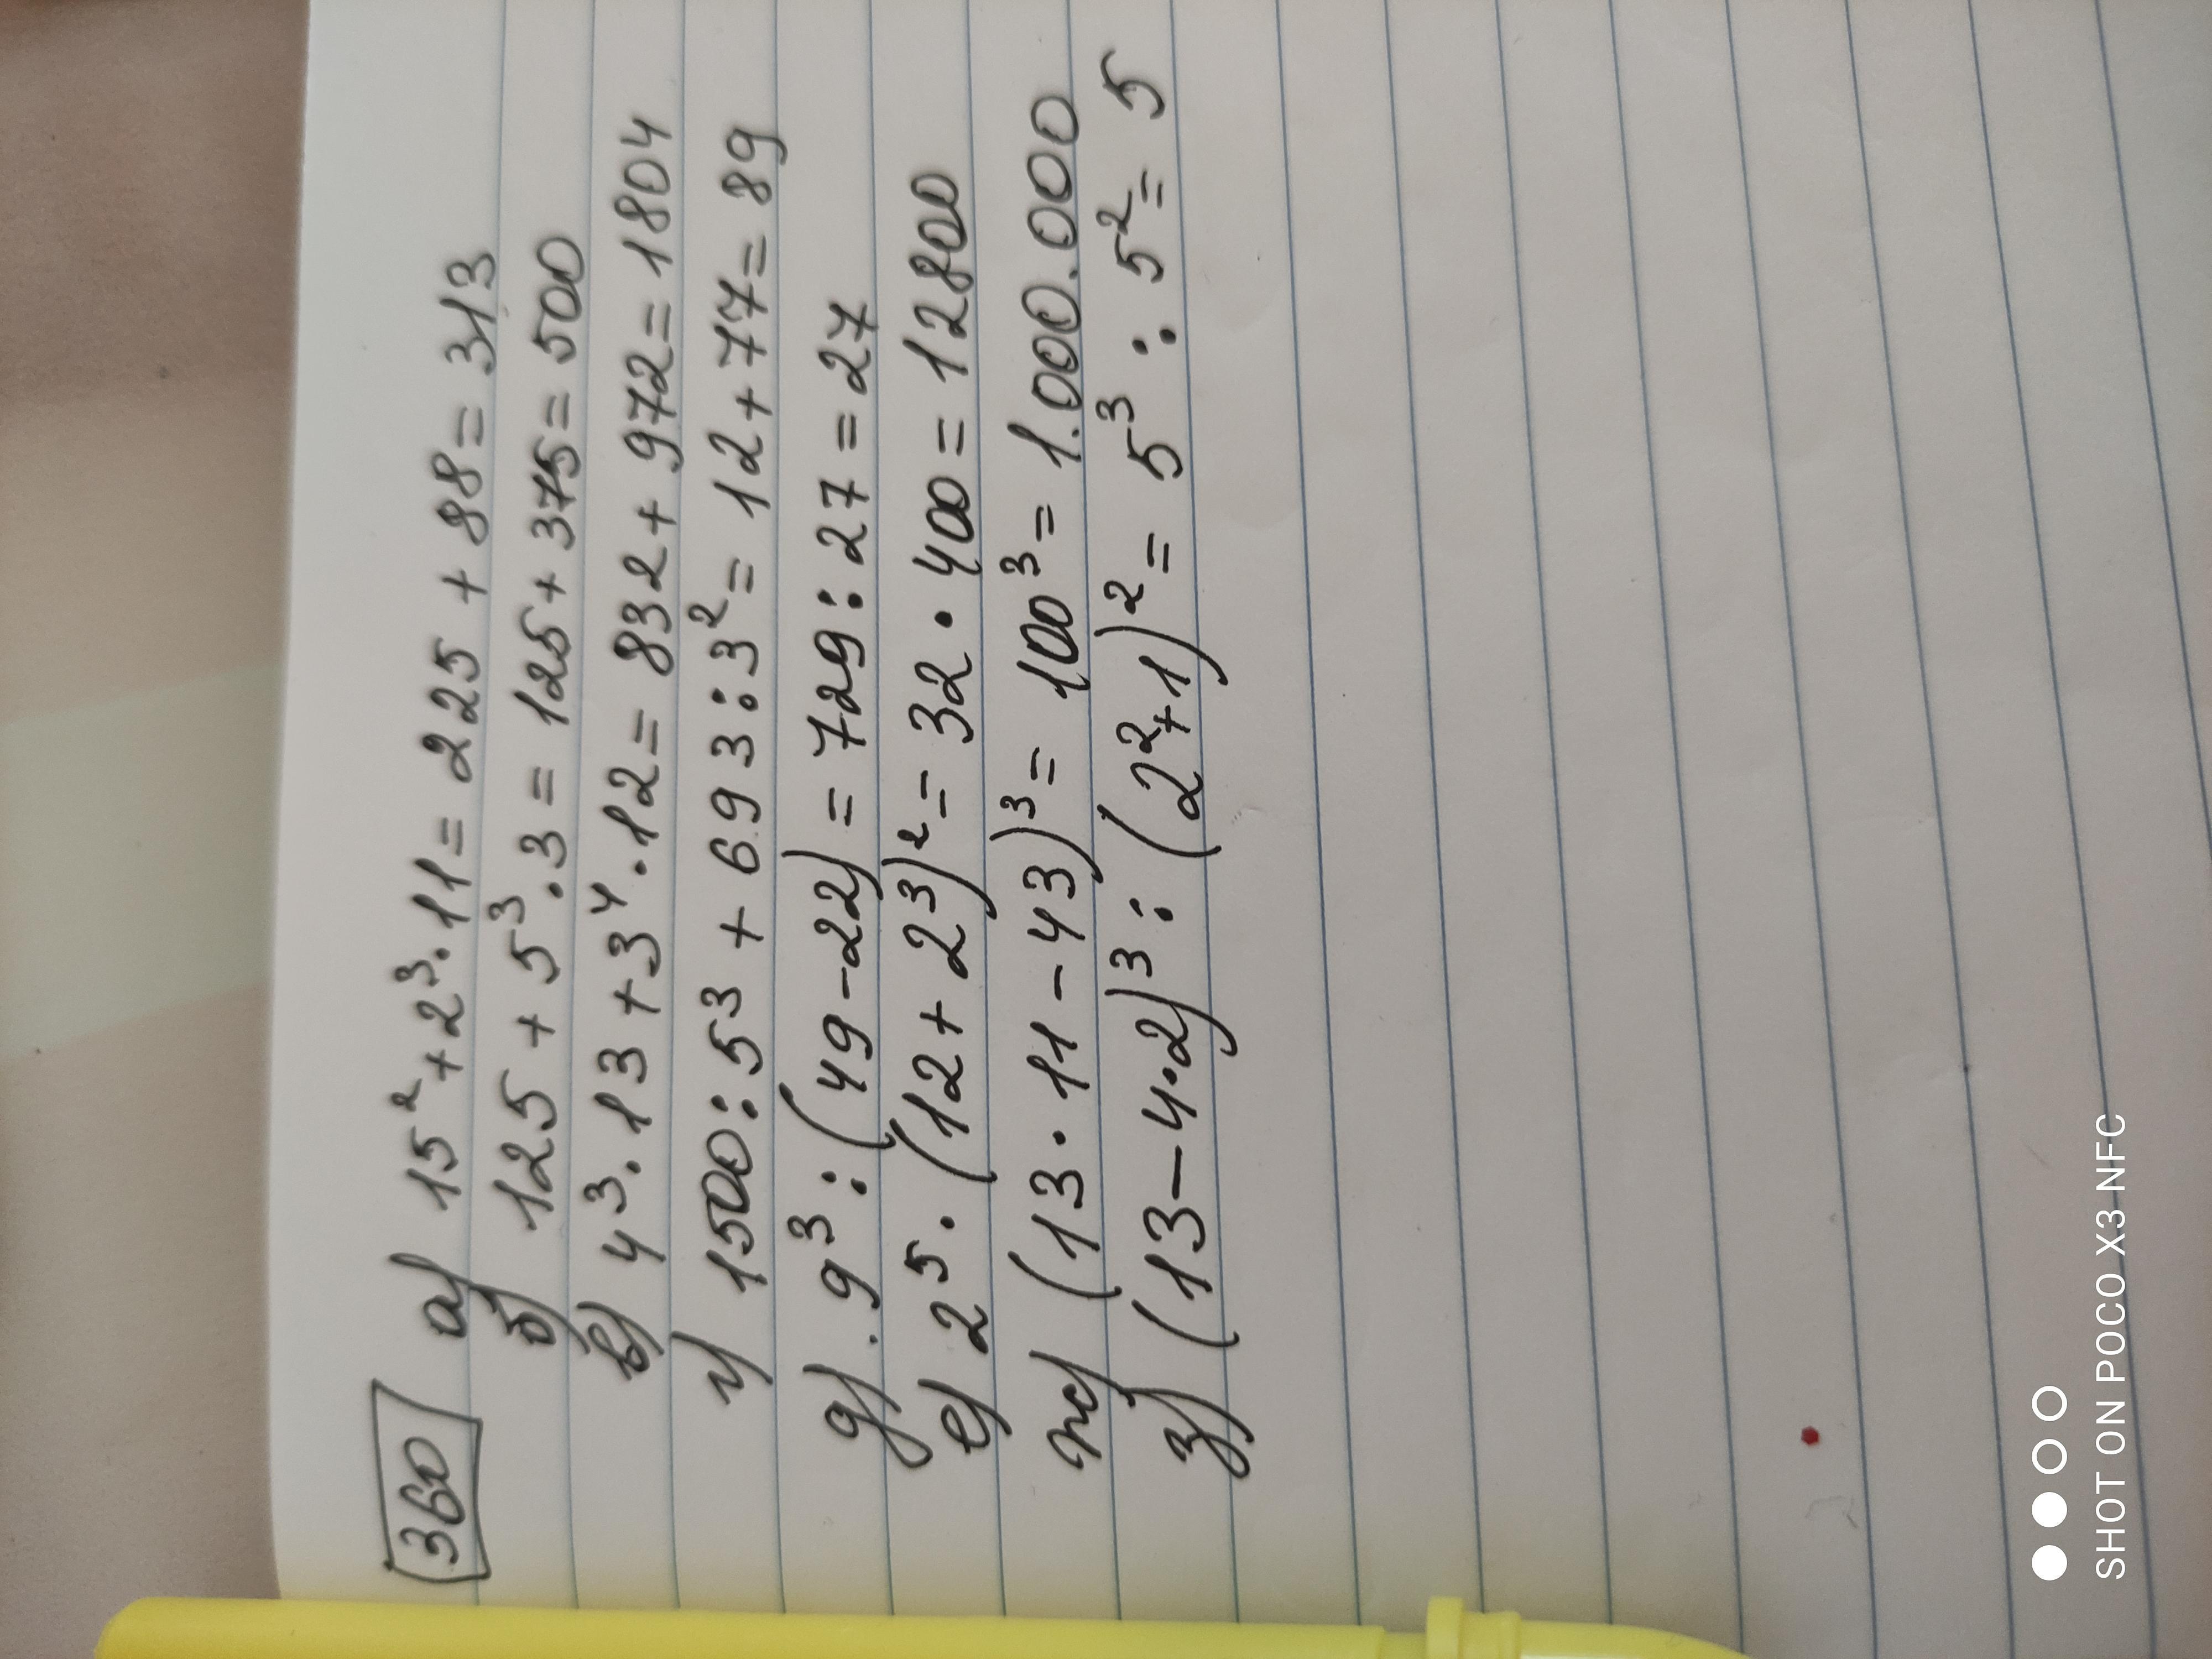 360 а) 15² + 2³ · 11 = 225 + 88 = 313
б) 125 + 5³ · 3 = 125 + 375 = 500
в) 4³ · 13 + 3⁴ · 12 = 832 + 972 = 1804
г) 1500 : 5³ + 693 : 3² = 12 + 77 = 89
д) 9³ : (49 - 22) = 729 : 27 = 27
е) 2⁵ · (12 + 2³)² = 32 · 400 = 12800
ж) (13 · 11 - 43)³ = 100³ = 1.000.000
з) (13 - 4 · 2)³ : (2² + 1)² = 5³ : 5² = 5
SHOT ON POCO X3 NFC